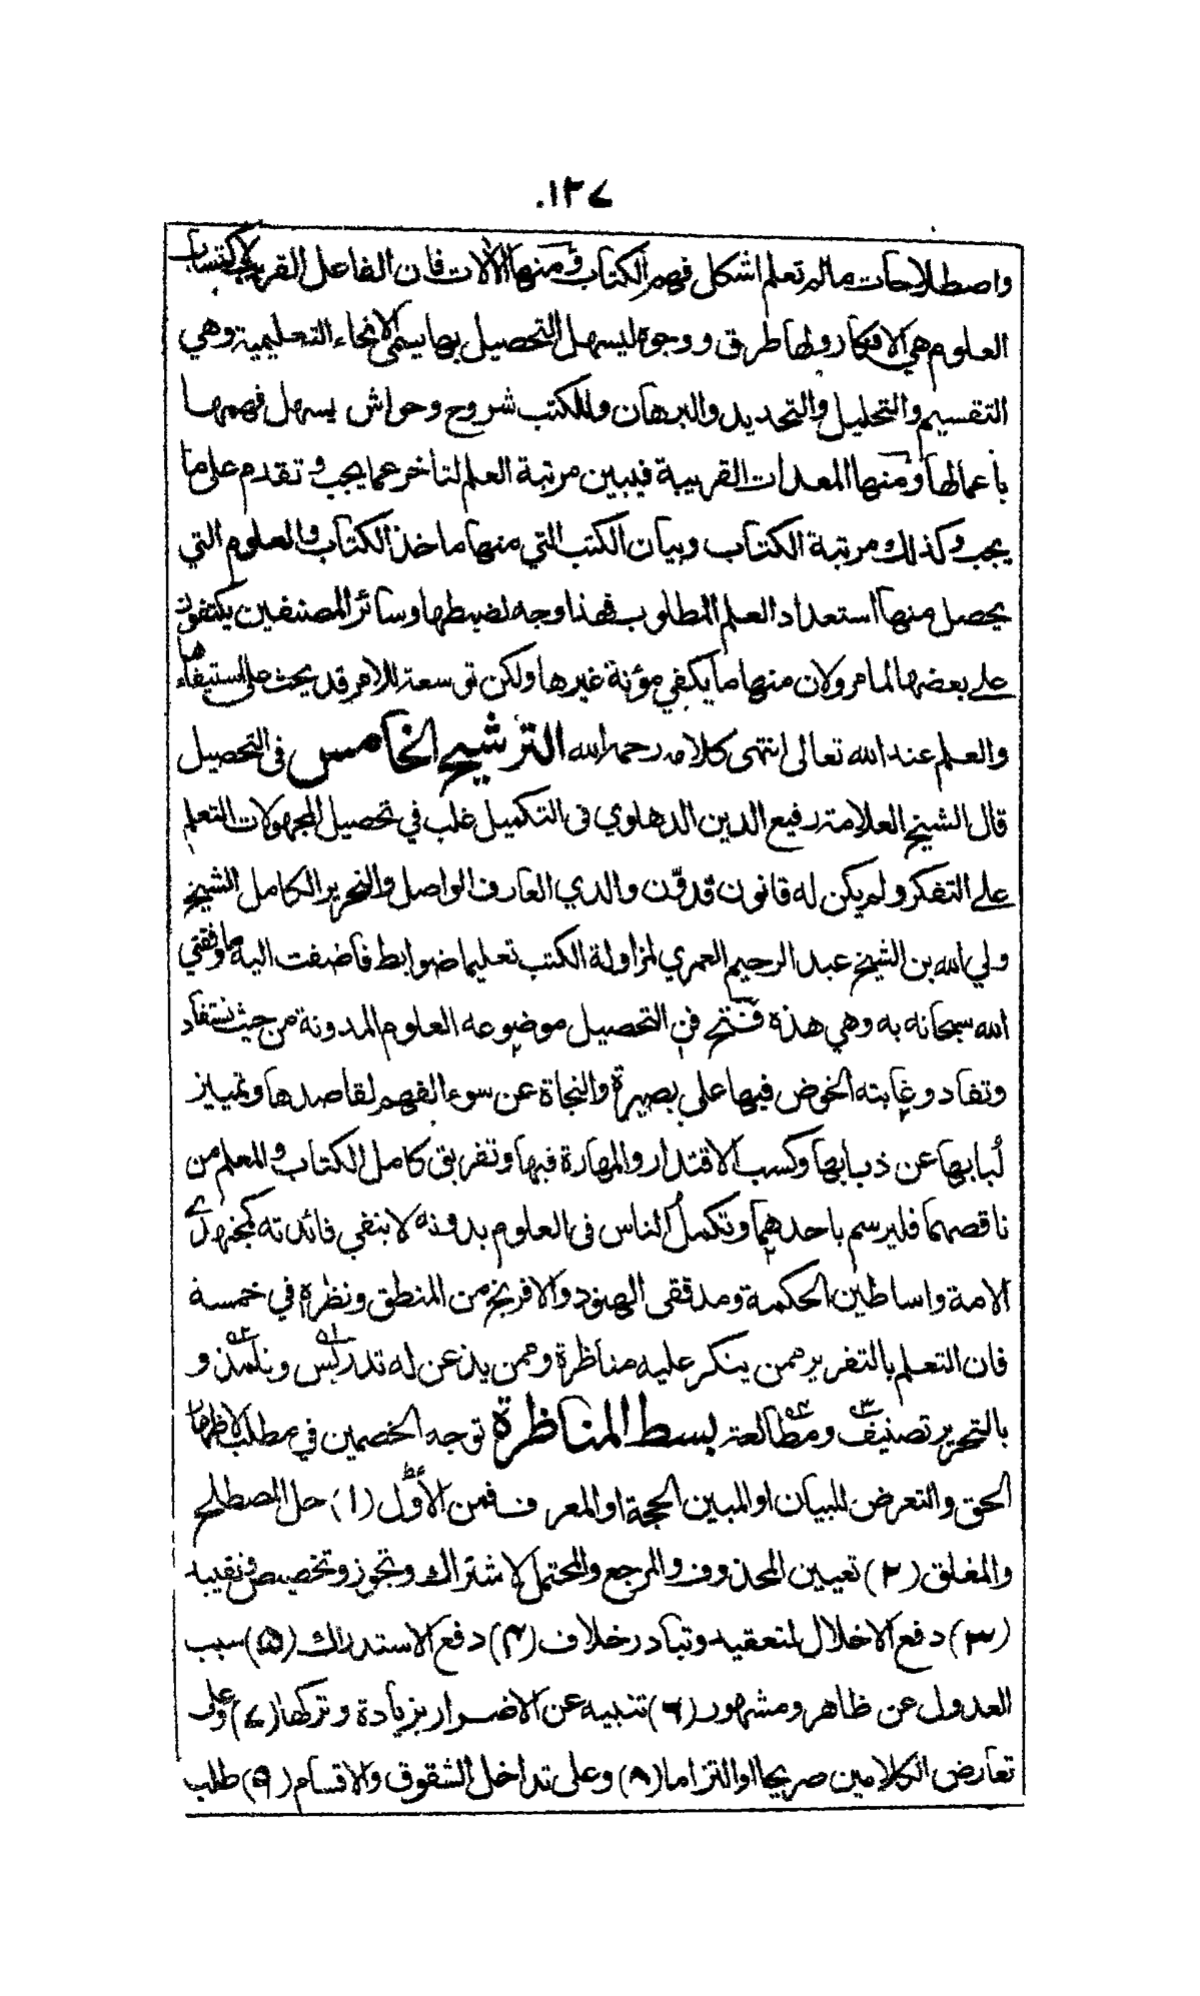 ١٣٧.
واصطلاحات مالم تعلم اشكل فهم الكتاب ومنها الالات فان الفاعل القريب لاكتساب
العلوم هي الافكار ولها طرق ووجوه ليسهل التحصيل بها يسمى الانحاء التعليمية وهي
التقسيم والتحليل والتحديد والبرهان وللكتب شروح وحواش يسهل فهمها
باعمالها ومنها المعدات القريبة فيبين مرتبة العلم لتاخر عما يجب وتقدم على ما
يجب وكذلك مرتبة الكتاب وبيان الكتب التي منها ماخذ الكتاب والعلوم التي
يحصل منها استعداد العلم المطلوب فهذا وجه لضبطها وسائر المصنفين يكتفون
على بعضها لما مر ولان منها ما يكفي مؤنة غيرها ولكن توسعة للامر قد يحث على استيفائها
والعلم عند الله تعالى انتهى كلامه رحمه الله الترشيح الخامس فى التحصيل
قال الشيخ العلامة رفيع الدين الدهلوي فى التكميل غلب في تحصيل المجهولات التعلم
على التفكر ولم يكن له قانون قدوّن والدي العارف الواصل والنحرير الكامل الشيخ
ولي الله بن الشيخ عبد الرحيم العمري لمزاولة الكتب تعليما ضوابط فاضفت اليه ما وفقني
الله سبحانه به وهي هذه فتح فن التحصيل موضوعه العلوم المدونة من حيث تستفاد
وتفاد وغايته الخوض فيها على بصيرة والنجاة عن سوء الفهم لمقاصدها وتمييز
لُبابها عن ذبابها وكسب الاقتدار والمهارة فيها وتفريق كامل الكتاب والمعلم من
ناقصهما فليرسم باحدهما وتكمل الناس فى العلوم بدونه لا ينفي فائدته كمجتهدي
الامة واساطين الحكمة ومدققى الهنود والافرنج من المنطق ونظره في خمسة
فان التعلم بالتقرير ممن ينكر عليه مناظرة وممن يذعن له تدريس وتلمذ و
بالتحرير تصنيف ومطالعة بسط المناظرة توجه الخصمين في مطلب لاظهار
الحق والتعرض للبيان او المبين الحجة او المعرف فمن الاول (١) حل المصطلح
والمغلق (٢) تعيين المحذوف والمرجع والمحتمل لاشتراك وتجوز وتخصيص وتقييد
(٣) دفع الاخلال لتعقيد وتبادر خلاف (۴) دفع الاستدراك (۵) سبب
العدول عن ظاهر ومشهور (٦) تنبيه عن الاضرار بزيادة وتركها (٧) وعلى
تعارض الكلامين صريحا او التزاما (٨) وعلى تداخل الشقوق والاقسام (٩) طلب